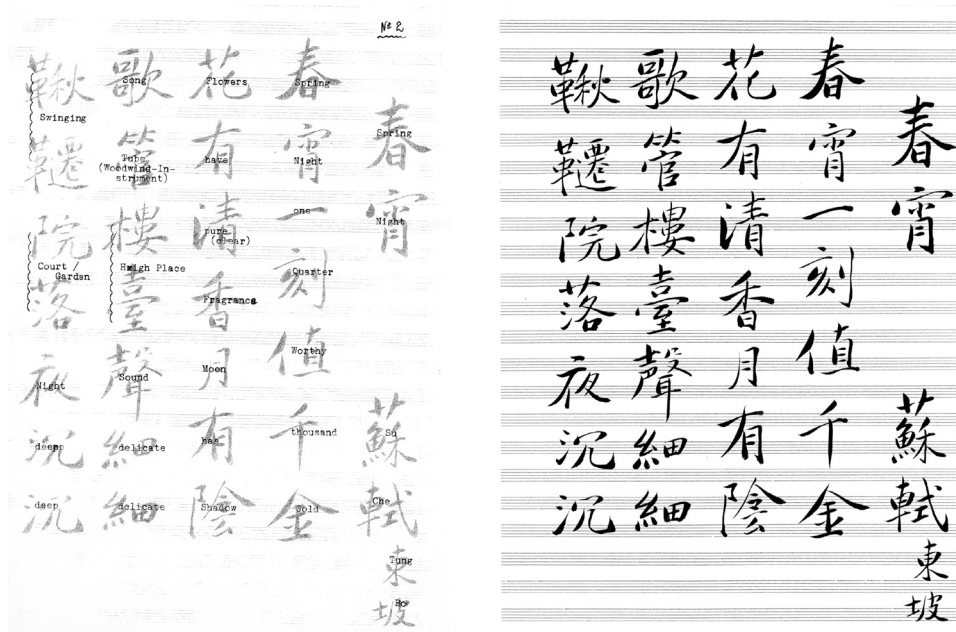 № 2
春宵
蘇軾
東坡
春宵一刻值千金
花有清香月有陰
歌管樓臺聲細細
鞦韆院落夜沉沉
Spring
Night
Su
Che
Tung
Po
Spring
Night
one
Quarter
Worthy
thousand
Gold
Flowers
have
pure
(clear)
Fragrance
Moon
has
Shadow
Song
Tube
(Woodwind-In-
strument)
High Place
Sound
delicate
delicate
Swinging
Court /
Garden
Night
deep
deep
春宵
蘇軾
東坡
春宵一刻值千金
花有清香月有陰
歌管樓臺聲細細
鞦韆院落夜沉沉